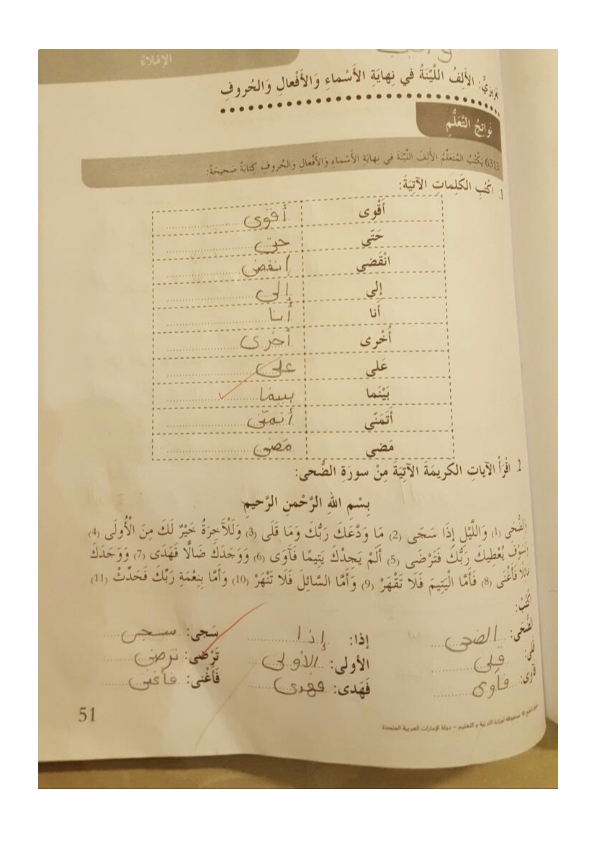 الإملاء
الأَلِفُ اللَّيِّنَةُ في نِهايَةِ الأَسْماءِ وَالأَفْعالِ وَالحُروفِ
نَواتِجُ التَّعَلُّمِ
يَكْتُبُ المُتَعَلِّمُ الأَلِفَ اللَّيِّنَةَ في نِهايَةِ الأَسْماءِ وَالأَفْعالِ وَالحُروفِ كِتابَةً صَحيحَةً:
1. اكْتُبِ الكَلِماتِ الآتِيَةَ:
أَقْوى أقوى
حَتّى حتى
انْقَضى انقضى
إِلى إلى
أَنا أنا
أُخْرى أخرى
عَلى على
بَيْنَما بينما
أَتَمَنّى أتمنّى
مَضى مَضى
2. اقْرَأِ الآياتِ الكَريمَةَ الآتِيَةَ مِنْ سورَةِ الضُّحى:
بِسْمِ اللهِ الرَّحْمنِ الرَّحيمِ
وَاللَّيْلِ إِذَا سَجَى (2) مَا وَدَّعَكَ رَبُّكَ وَمَا قَلَى (3) وَلَلْآخِرَةُ خَيْرٌ لَكَ مِنَ الْأُولَى (4)
يُعْطِيكَ رَبُّكَ فَتَرْضَى (5) أَلَمْ يَجِدْكَ يَتِيمًا فَآوَى (6) وَوَجَدَكَ ضَالًّا فَهَدَى (7) وَوَجَدَكَ
فَأَغْنَى (8) فَأَمَّا الْيَتِيمَ فَلَا تَقْهَرْ (9) وَأَمَّا السَّائِلَ فَلَا تَنْهَرْ (10) وَأَمَّا بِنِعْمَةِ رَبِّكَ فَحَدِّثْ (11)
الضحى إذا: إذا سَجى: سجى
قلى الأولى: الأولى تَرْضى: ترضى
فآوى فَهَدى: فهدى فَأَغْنى: فأغنى
محفوظة لوزارة التربية والتعليم – دولة الإمارات العربية المتحدة
51